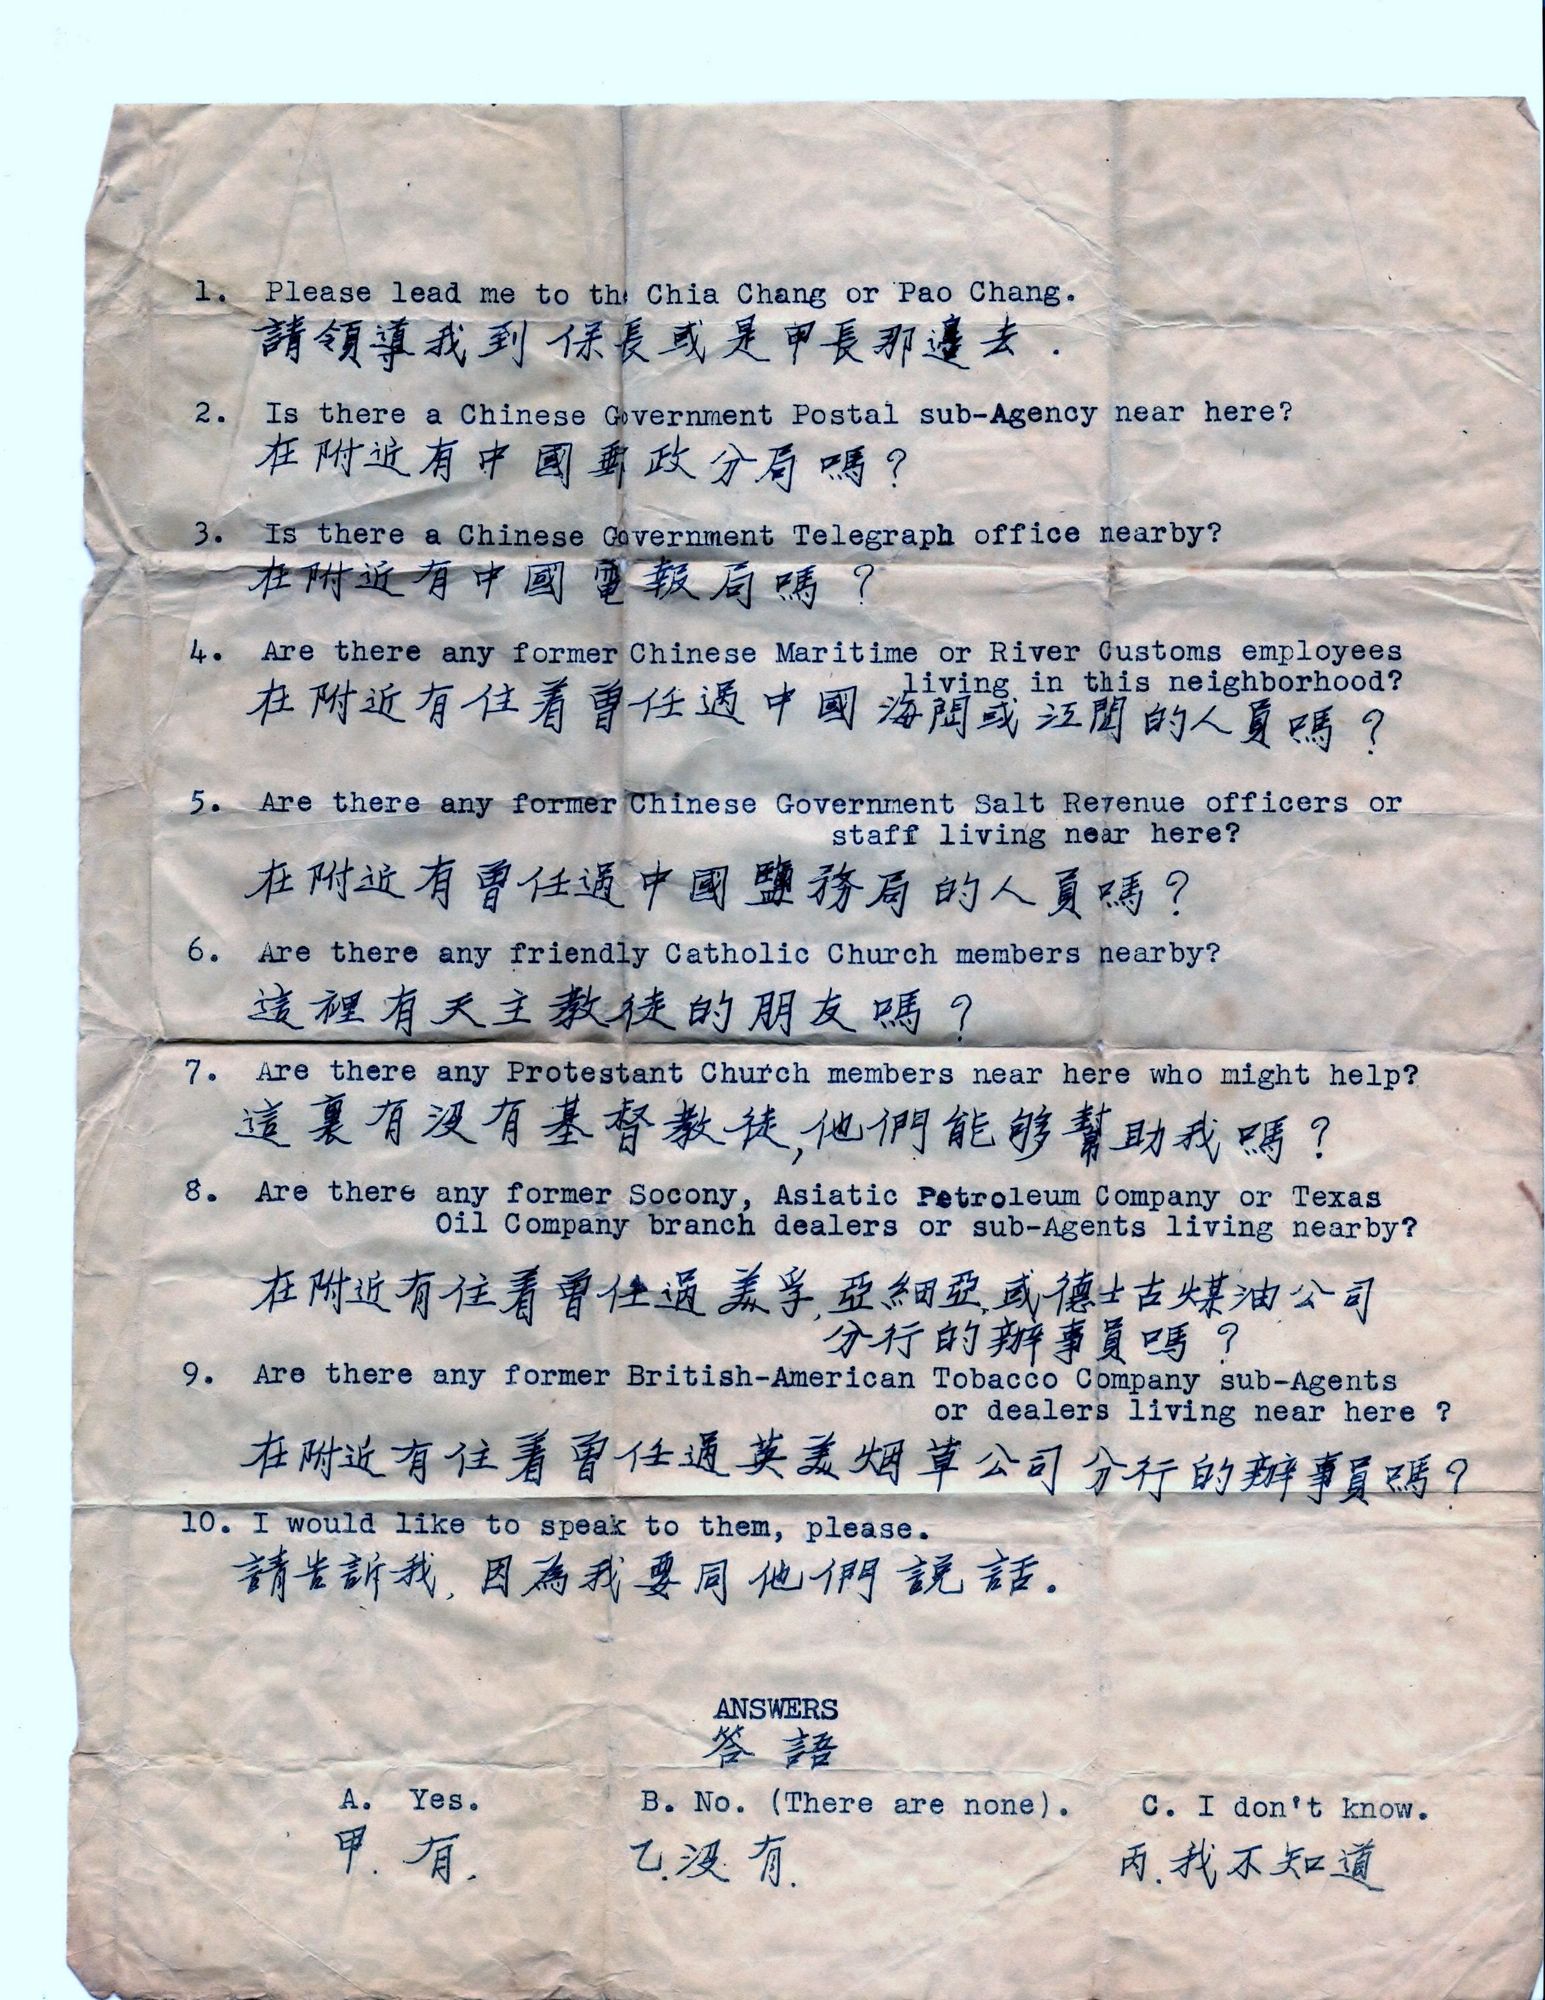 1. Please lead me to the Chia Chang or Pao Chang.
請領導我到保長或是甲長那邊去.
2. Is there a Chinese Government Postal sub-Agency near here?
在附近有中國郵政分局嗎?
3. Is there a Chinese Government Telegraph office nearby?
在附近有中國電報局嗎?
4. Are there any former Chinese Maritime or River Customs employees
living in this neighborhood?
在附近有住着曾任過中國海関或江関的人員嗎?
5. Are there any former Chinese Government Salt Revenue officers or
staff living near here?
在附近有曾任過中國鹽務局的人員嗎?
6. Are there any friendly Catholic Church members nearby?
這裡有天主教徒的朋友嗎?
7. Are there any Protestant Church members near here who might help?
這裏有沒有基督教徒,他們能够幫助我嗎?
8. Are there any former Socony, Asiatic Petroleum Company or Texas
Oil Company branch dealers or sub-Agents living nearby?
在附近有住着曾任過美孚,亞細亞,或德士古煤油公司
分行的辦事員嗎?
9. Are there any former British-American Tobacco Company sub-Agents
or dealers living near here ?
在附近有住着曾任過英美烟草公司分行的辦事員嗎?
10. I would like to speak to them, please.
請告訴我,因為我要同他們說話.
ANSWERS
答語
A. Yes. B. No. (There are none). C. I don't know.
甲.有. 乙.沒有. 丙.我不知道